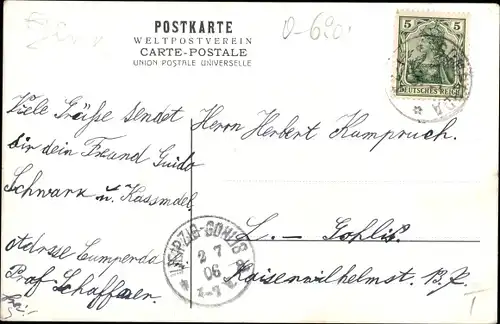 POSTKARTE
WELTPOSTVEREIN
CARTE-POSTALE
UNION POSTALE UNIVERSELLE
D-6501
5 5
DEUTSCHES REICH
Viele Grüße sendet
Dir dein Freund Guido
Schwarx u. Kassmdel
Adresse Cumperda
Prof Schaffner
Herrn Herbert Kampruch.
L. – Gohlis.
Kaiserwilhelmst.
LEIPZIG-GOHLIS
2 7
06